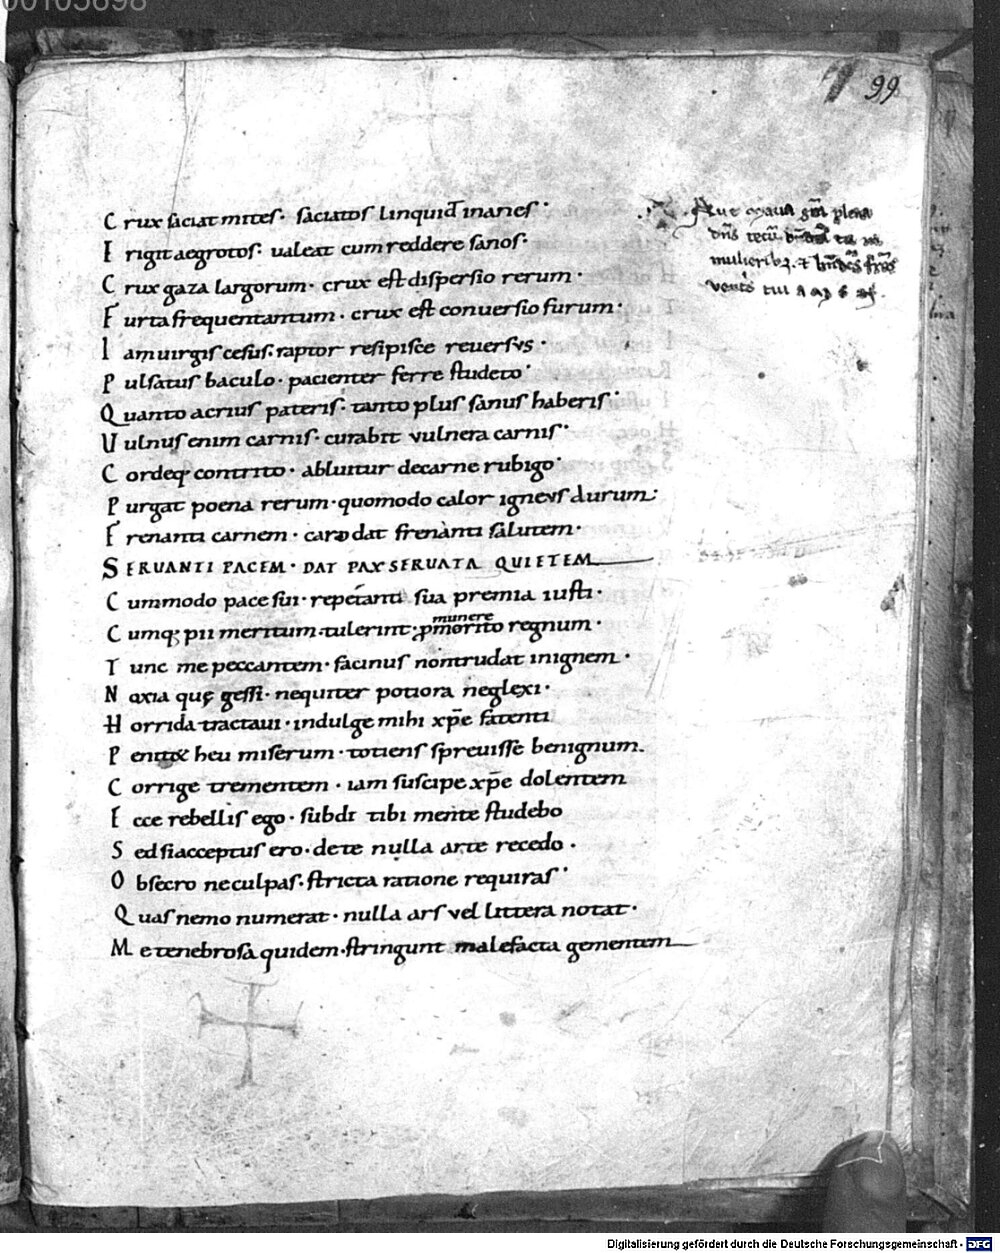 00105698
99
Crux saciat mites· saciatos linquid inanes·
Erigit aegrotos· ualeat cum reddere sanos·
Crux gaza largorum· crux est dispersio rerum·
Furta frequentantum· crux est conuersio furum·
Iam uirgis cesus· raptor resipisce reuersus·
Pulsatus baculo· pacienter ferre studeto·
Quanto acrius pateris· tanto plus sanus haberis·
Uulnus enim carnis· curabit vulnera carnis·
Cordeq· contrito· abluitur de carne rubigo·
Purgat poena rerum· quomodo calor igneus durum·
Frenanti carnem· caro dat frenanti salutem·
SERUANTI PACEM· DAT PAX SERUATA QUIETEM
Cum modo pace sui· repetanti sua premia iusti·
munere
Cumq; pii meritum tulerint· p̱ morito regnum·
Tunc me peccantem· facinus non trudat in ignem·
Noxia quę gessi· nequiter potiora neglexi·
Horrida tractaui· indulge mihi xp̄e fatenti
heu miserum· totiens spreuisse benignum.
Corrige trementem· iam suscipe xp̄e dolentem
Ecce rebellis ego· subdi tibi mente studebo
Sed si acceptus ero· de te nulla arte recedo·
Obsecro ne culpas· stricta ratione requiras·
Quas nemo numerat· nulla ars vel littera notat·
Me tenebrosa quidem· stringunt malefacta gementem
Aue maria gr̄a plena
dn̄s tecū tu in
mulierib3·
uentris tui
Digitalisierung gefördert durch die Deutsche Forschungsgemeinschaft - DFG